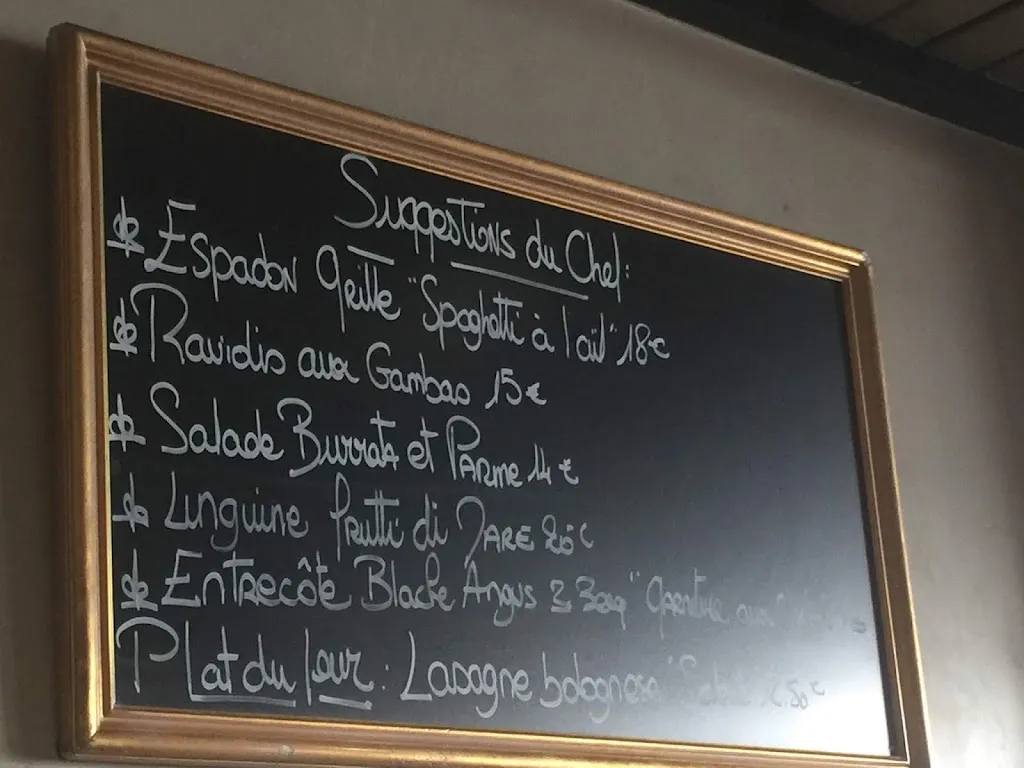 Suggestions du Chef:
Espadon grille "Spaghetti à l'ail" 18€
Raviolis aux Gambas 15€
Salade Burrata et Parme 14€
Linguine frutti di Mare 20€
Entrecôte Black Angus
Plat du jour: Lasagne bolognese